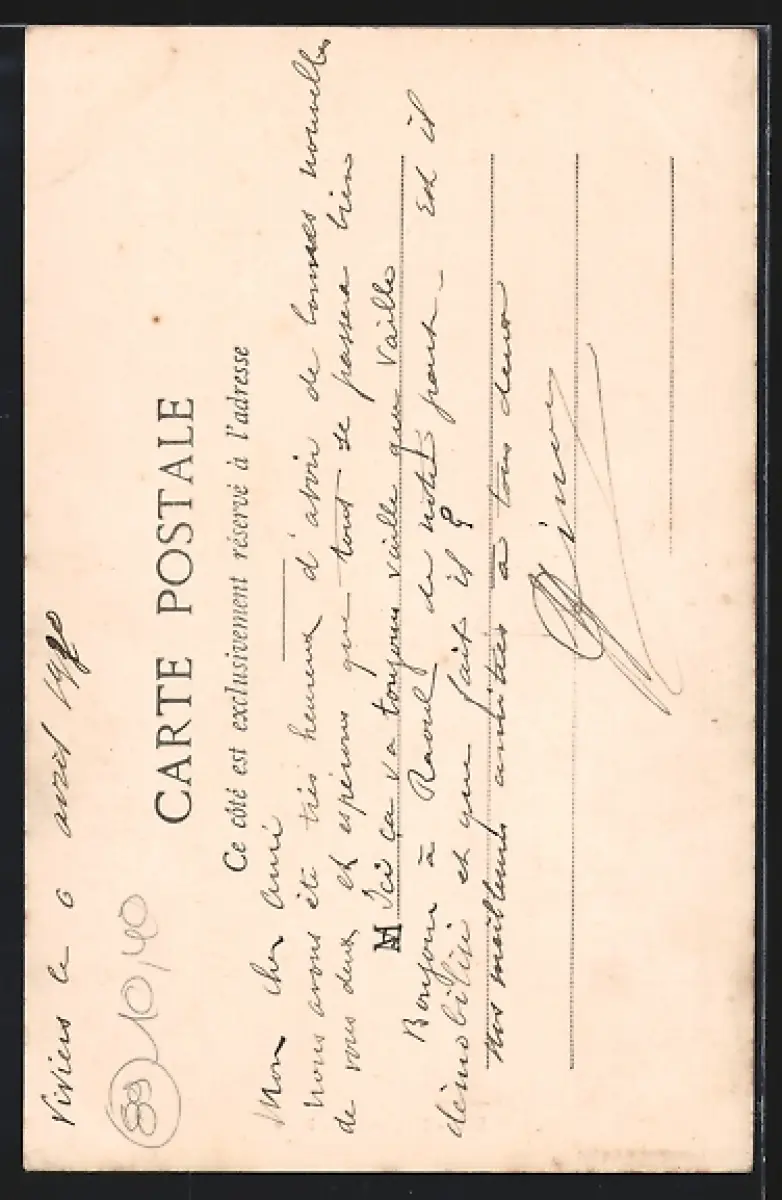 Viviers le 6 avril 1920
89 10,40
CARTE POSTALE
Ce côté est exclusivement réservé à l'adresse
Mon cher ami
Nous avons été très heureux d'avoir de bonnes nouvelles
de vous deux et espérons que tout se passera bien
M Ici ça va toujours vaille que vaille
Bonjour à Raoul de notre part - Est il
démobilisé et que fait il ?
Nos meilleures amitiés à tous deux